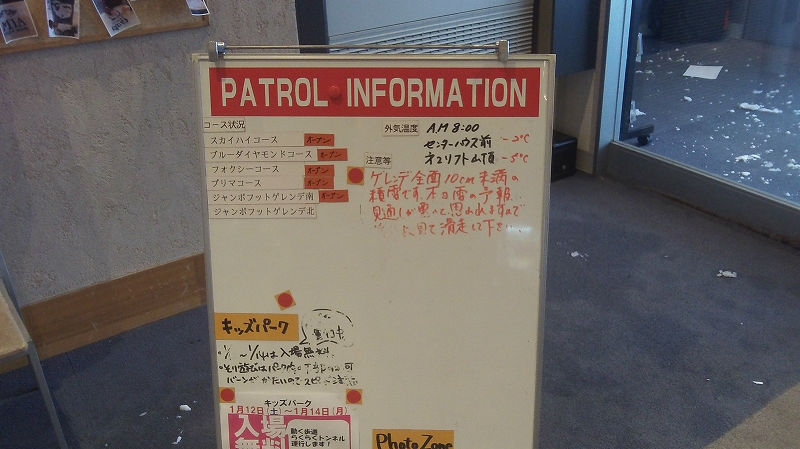 PATROL INFORMATION
コース状況
スカイハイコース オープン
ブルーダイヤモンドコース オープン
フォクシーコース オープン
プリマコース オープン
ジャンボフットゲレンデ南 オープン
ジャンボフットゲレンデ北
外気温度 AM 8:00
センターハウス前 -2℃
山頂 -5℃
注意等
ゲレンデ全面10cm未満の
積雪です。本日雪の予報
見通しが悪いと思われますので
見て滑走して下さ
キッズパーク
～1/14は入場無料
・そり遊びはパーク 可
バーンがかたいので スピード注意
キッズパーク
1月12日(土)～1月14日(月)
入場
無料
動く歩道
らくらくトンネル
運行します!
Photo Zone